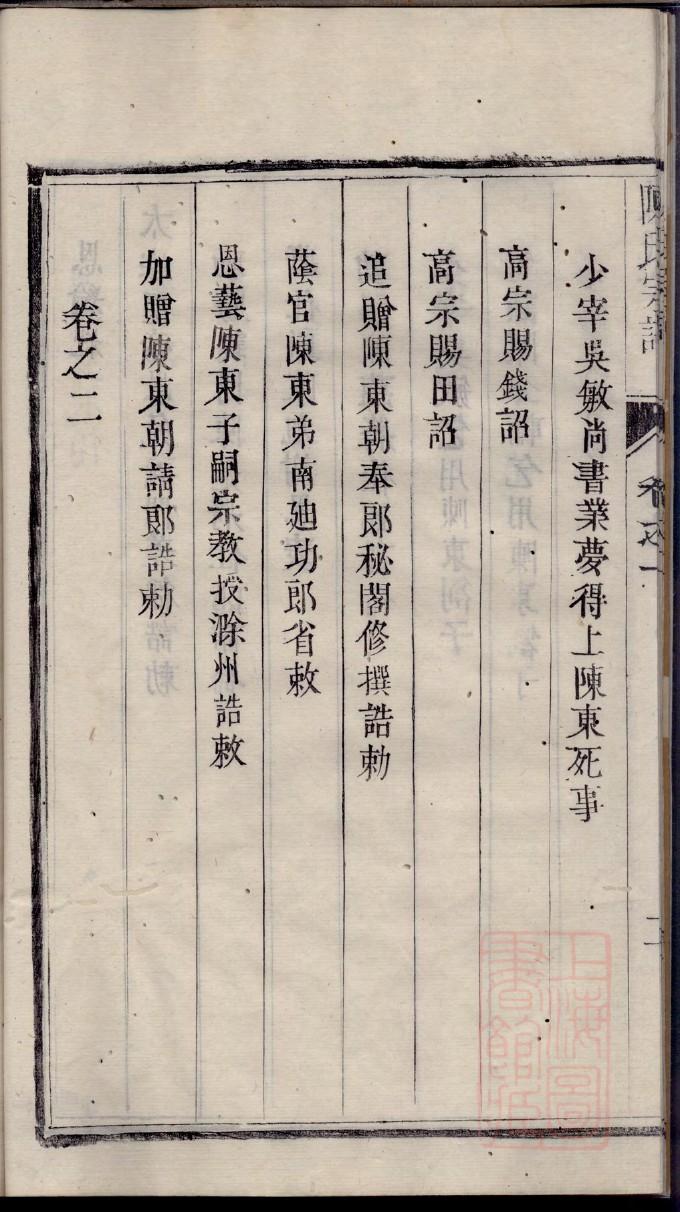 陳氏宗譜
卷之一
二
少宰吳敏尚書業夢得上陳東死事
高宗賜錢詔
高宗賜田詔
追贈陳東朝奉郎秘閣修撰誥勅
蔭官陳東弟南廸功郎省敕
恩藝陳東子嗣宗教授滁州誥敕
加贈陳東朝請郎誥勅
卷之二
上海圖書館藏